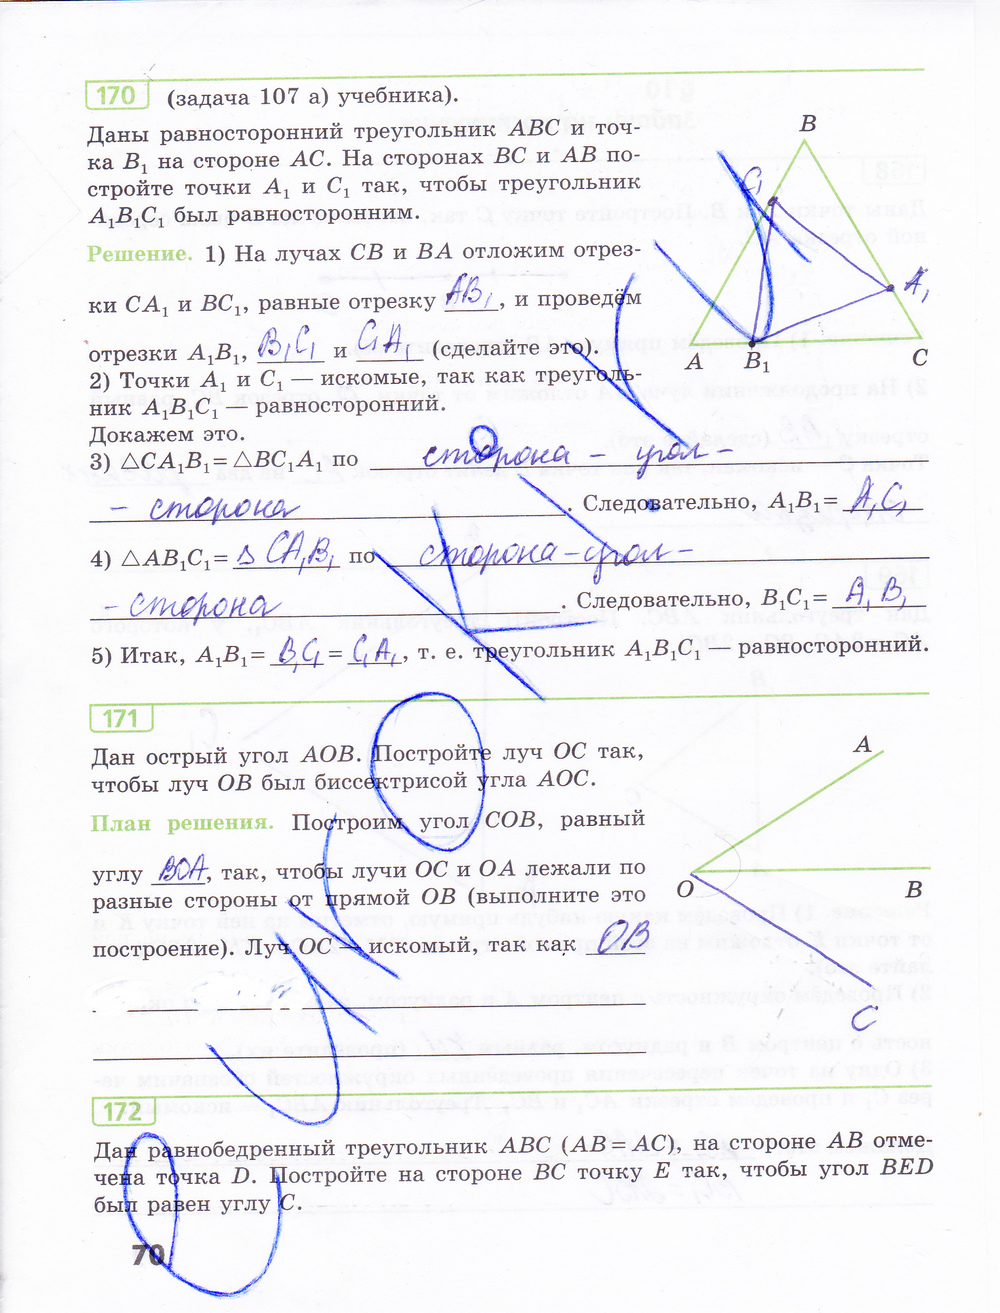 170 (задача 107 а) учебника).
Даны равносторонний треугольник ABC и точ-
ка B₁ на стороне AC. На сторонах BC и AB по-
стройте точки A₁ и C₁ так, чтобы треугольник
A₁B₁C₁ был равносторонним.
Решение. 1) На лучах CB и BA отложим отрез-
ки CA₁ и BC₁, равные отрезку AB₁, и проведём
отрезки A₁B₁, B₁C₁ и C₁A₁ (сделайте это).
2) Точки A₁ и C₁ — искомые, так как треуголь-
ник A₁B₁C₁ — равносторонний.
Докажем это.
B
C₁
A₁
A
B₁
C
3) △CA₁B₁ = △BC₁A₁ по сторона - угол -
- сторона. Следовательно, A₁B₁ = A₁C₁
4) △AB₁C₁ = △ CA₁B₁ по сторона - угол -
- сторона. Следовательно, B₁C₁ = A₁B₁
5) Итак, A₁B₁ = B₁C₁ = C₁A₁, т. е. треугольник A₁B₁C₁ — равносторонний.
171
Дан острый угол AOB. Постройте луч OC так,
чтобы луч OB был биссектрисой угла AOC.
План решения. Построим угол COB, равный
углу BOA, так, чтобы лучи OC и OA лежали по
разные стороны от прямой OB (выполните это
построение). Луч OC — искомый, так как OB
A
O
B
C
172
Дан равнобедренный треугольник ABC (AB = AC), на стороне AB отме-
чена точка D. Постройте на стороне BC точку E так, чтобы угол BED
был равен углу C.
70